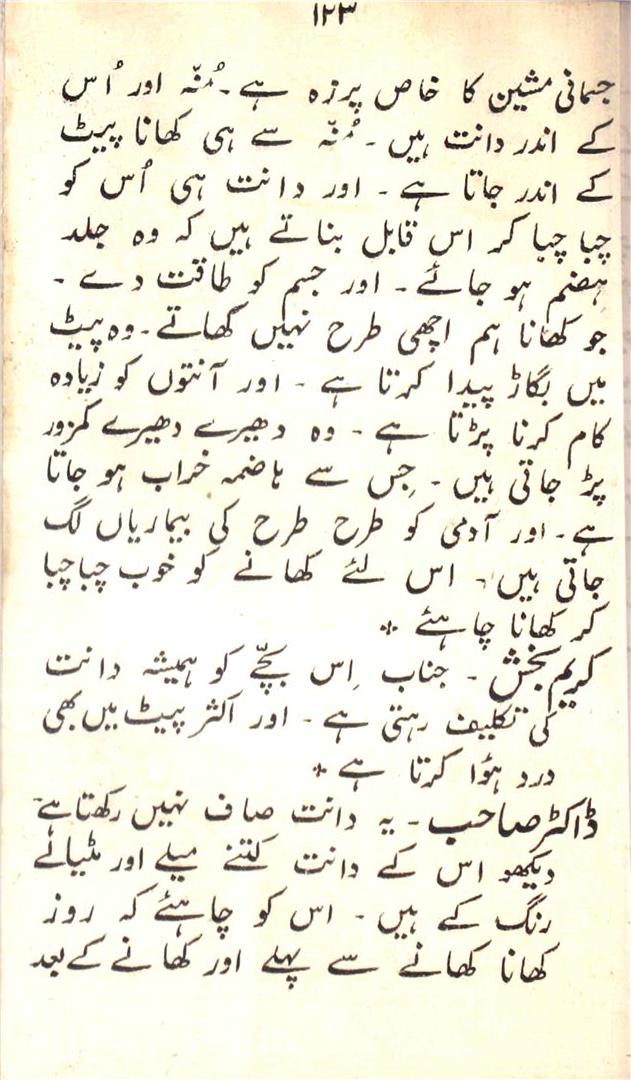 ۱۲۳
جسمانی مشین کا خاص پرزہ ہے۔ مُنّہ اور اُس
کے اندر دانت ہیں۔ مُنّہ سے ہی کھانا پیٹ
کے اندر جاتا ہے۔ اور دانت ہی اُس کو
چبا چبا کر اس قابل بناتے ہیں کہ وہ جلد
ہضم ہو جائے۔ اور جسم کو طاقت دے۔
جو کھانا ہم اچھی طرح نہیں کھاتے۔ وہ پیٹ
میں بگاڑ پیدا کرتا ہے۔ اور آنتوں کو زیادہ
کام کرنا پڑتا ہے۔ وہ دھیرے دھیرے کمزور
پڑ جاتی ہیں۔ جِس سے ہاضمہ خراب ہو جاتا
ہے۔ اور آدمی کو طرح طرح کی بیماریاں لگ
جاتی ہیں۔ اس لئے کھانے کو خوب چبا چبا
کر کھانا چاہئے *
کریم بخش۔ جناب اِس بچّے کو ہمیشہ دانت
کی تکلیف رہتی ہے۔ اور اکثر پیٹ میں بھی
درد ہؤا کرتا ہے *
ڈاکٹر صاحب۔ یہ دانت صاف نہیں رکھتا ہے۔
دیکھو اس کے دانت کتنے میلے اور مٹیالے
رنگ کے ہیں۔ اس کو چاہئے کہ روز
کھانا کھانے سے پہلے اور کھانے کے بعد